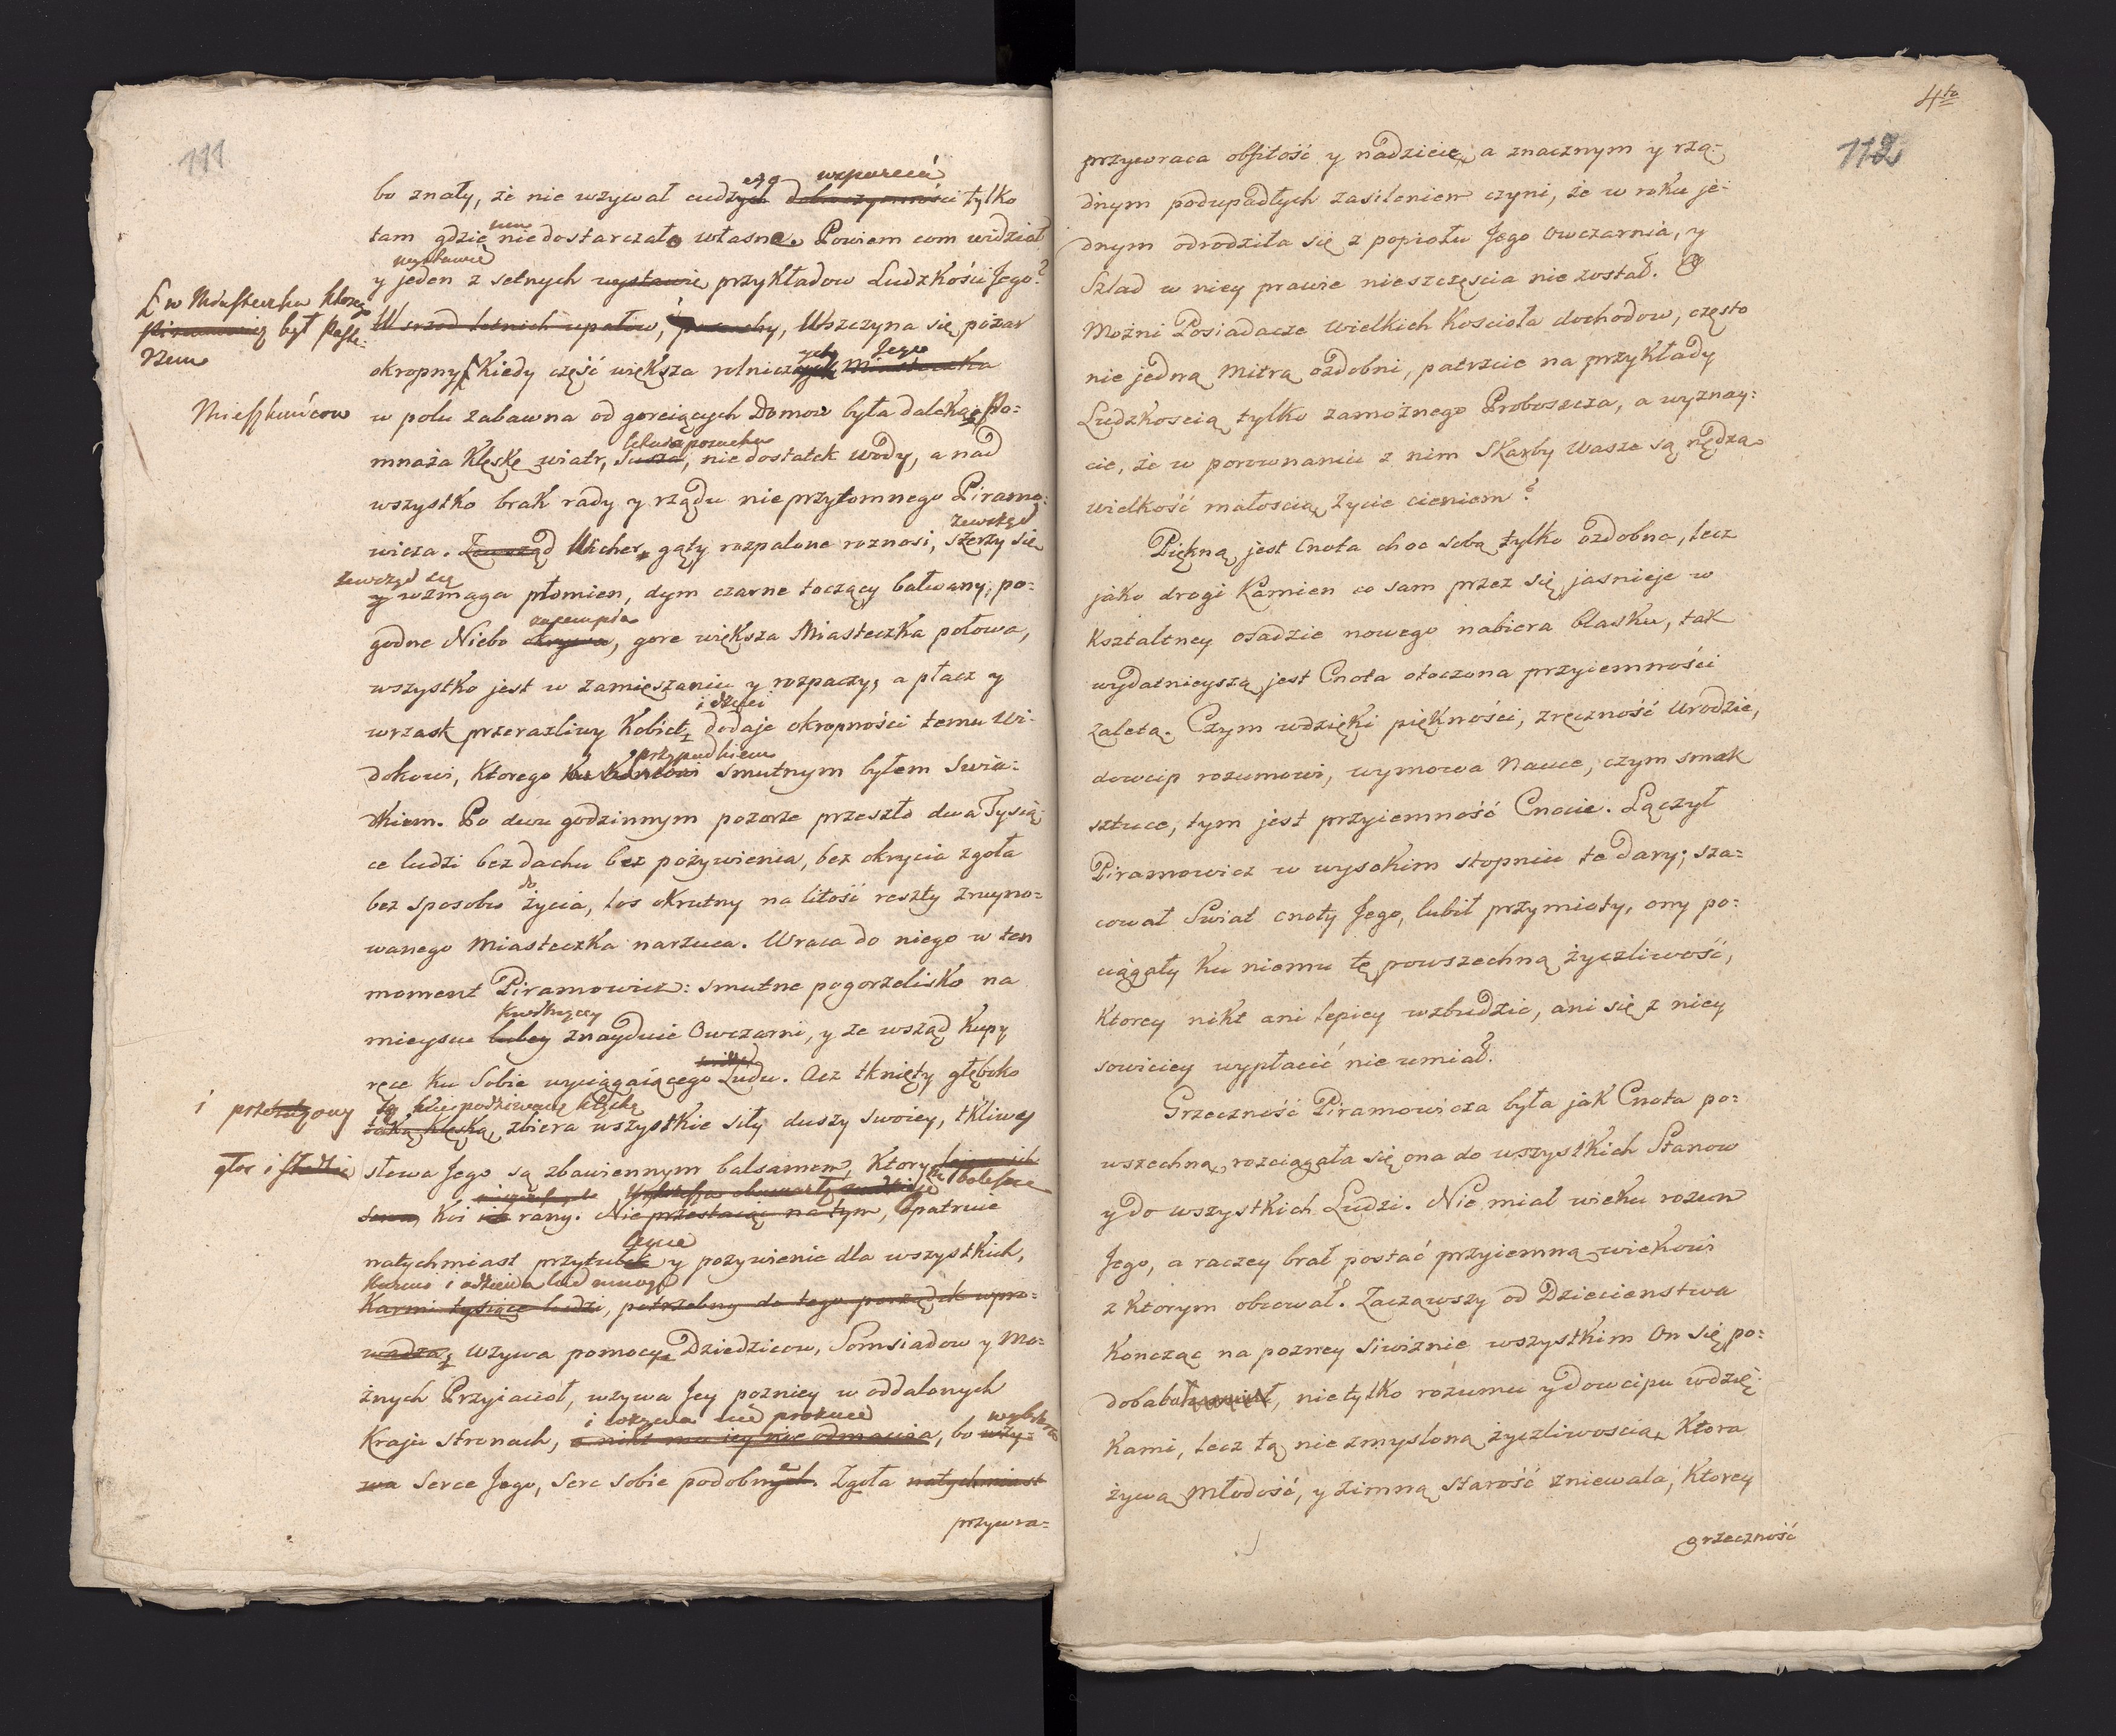 111
bo znały, że nie wzywał cudzych ego dobroczynności wsparcia tylko
tam gdzie mu niedostarczało własne. Powiem com widział
y jeden z setnych wystawie wystawię przykładow Ludzkości Jego?
[w Miasteczku ktorego
Piramowicz był Paste-
rzem
Wsrzod letnich upałow, posuchy, Wszczyna się pożar
okropny[Kiedy część większa rolniczych Jego Miasteczka
Mieszkańcow
w polu zabawna od goreiących Domow była daleką; Po=
mnaża Klęskę wiatr, Susza, posucha, niedostatek Wody, a nad
wszystko brak rady y rządu nieprzytomnego Piramo=
wicza. Zewsząd Wicher gąty rozpalone roznosi, szerzy się zewsząd
zewsząd się
y wzmaga płomien, dym czarne toczący bałwany, po=
godne Niebo okrywa zasempia, gore większa Miasteczka połowa,
wszystko jest w zamięszaniu y rozpaczy, a płacz y
wrzask przerazliwy Kobiet i dzieci dodaje okropności temu Wi-
dokowi, Ktorego przypadkiem smutnym byłem Swia=
dkiem. Po dwu godzinnym pożarze przeszło dwa Tysią=
ce ludzi bez dachu bez pożywienia, bez okrycia zgoła
bez sposobu do życia, los okrutny na litość reszty zruyno=
wanego Miasteczka narzuca. Wraca do niego w ten
moment Piramowicz: smutne pogorzelisko na
mieyscu lubey kwitnącey znayduie Owczarni, y ze wsząd Kupy
ręce Ku Sobie wyciągaiącego Ludu. Acz tknięty głęboko
i przerażony
tą niespodziewaną klęską
taką klęską, zbiera wszystkie siły duszy swoiey, tkliwy
głos i słodkie
słowa Jego są zbawiennym balsamem, Ktory
Koi ich rany. Nie przestaiąc na tym, Opatruie
natychmiast przytułek y pożywienie dla wszystkich,
Karmi i odziewa lud mnogi
Karmi tysiące ludzi, potrzebny do tego porządek wpro=
wadza, Wzywa pomocy Dziedzicow, Somsiadow y Mo=
żnych Przyiacioł, wzywa Jey pozniey w oddalonych
Kraju stronach, i wzywa nie prożno a nikt mu iey nie odmawia, bo wzy=
wa Serce Jego, Serc Sobie podobnych. Zgoła natychmiast
przywra=
4to
112
przywraca obfitość y nadzieię, a znacznym y rzą=
dnym podupadłych zasileniem czyni, że w roku je=
dnym odrodziła się z popiołu Jego Owczarnia, y
Szlad w niey prawie nieszczęscia nie został. O
Możni Posiadacze Wielkich Kościoła dochodow, często
nie jedną Mitrą ozdobni, patrzcie na przykłady
Ludzkoscią tylko zamożnego Proboszcza, a wyznay=
cie, że w porownaniu z nim Skarby Wasze są nędzą
wielkość małoscią, życie cieniem?
Piękną jest Cnota choc sobą tylko ozdobna, lecz
jako drogi Kamien co sam przez się jasnieje w
Kształtney osadzie nowego nabiera blasku, tak
wydatnieyszą jest Cnota otoczona przyiemności
zaletą. Czym wdzięki piękności, zręczność Urodzie,
dowcip rozumowi, wymowa Nauce, czym smak
sztuce, tym jest przyiemność Cnocie. Łączył
Piramowicz w wysokim stopniu te dary; sza=
cował Swiat cnoty Jego, lubił przymioty, ony po=
ciągały Ku niemu tę powszechną życzliwość,
Ktorey nikt ani lepiey wzbudzic, ani się z niey
sowiciey wypłacić nie umiał.
Grzeczność Piramowicza była jak Cnota po=
wszechną, rozciągała się ona do wszystkich Stanow
y do wszystkich Ludzi. Nie miał wieku rozum
Jego, a raczey brał postać przyiemną wiekowi
z Ktorym obcował. Zacząwszy od Dziecienstwa
Kończąc na pozney Siwiznie wszystkim On się po=
dobał, nietylko rozumu y dowcipu wdzię=
Kami, lecz tą niezmysloną życzliwoscią, Ktora
żywą Młodość, y zimną Starość zniewala, Ktorey
grzeczność